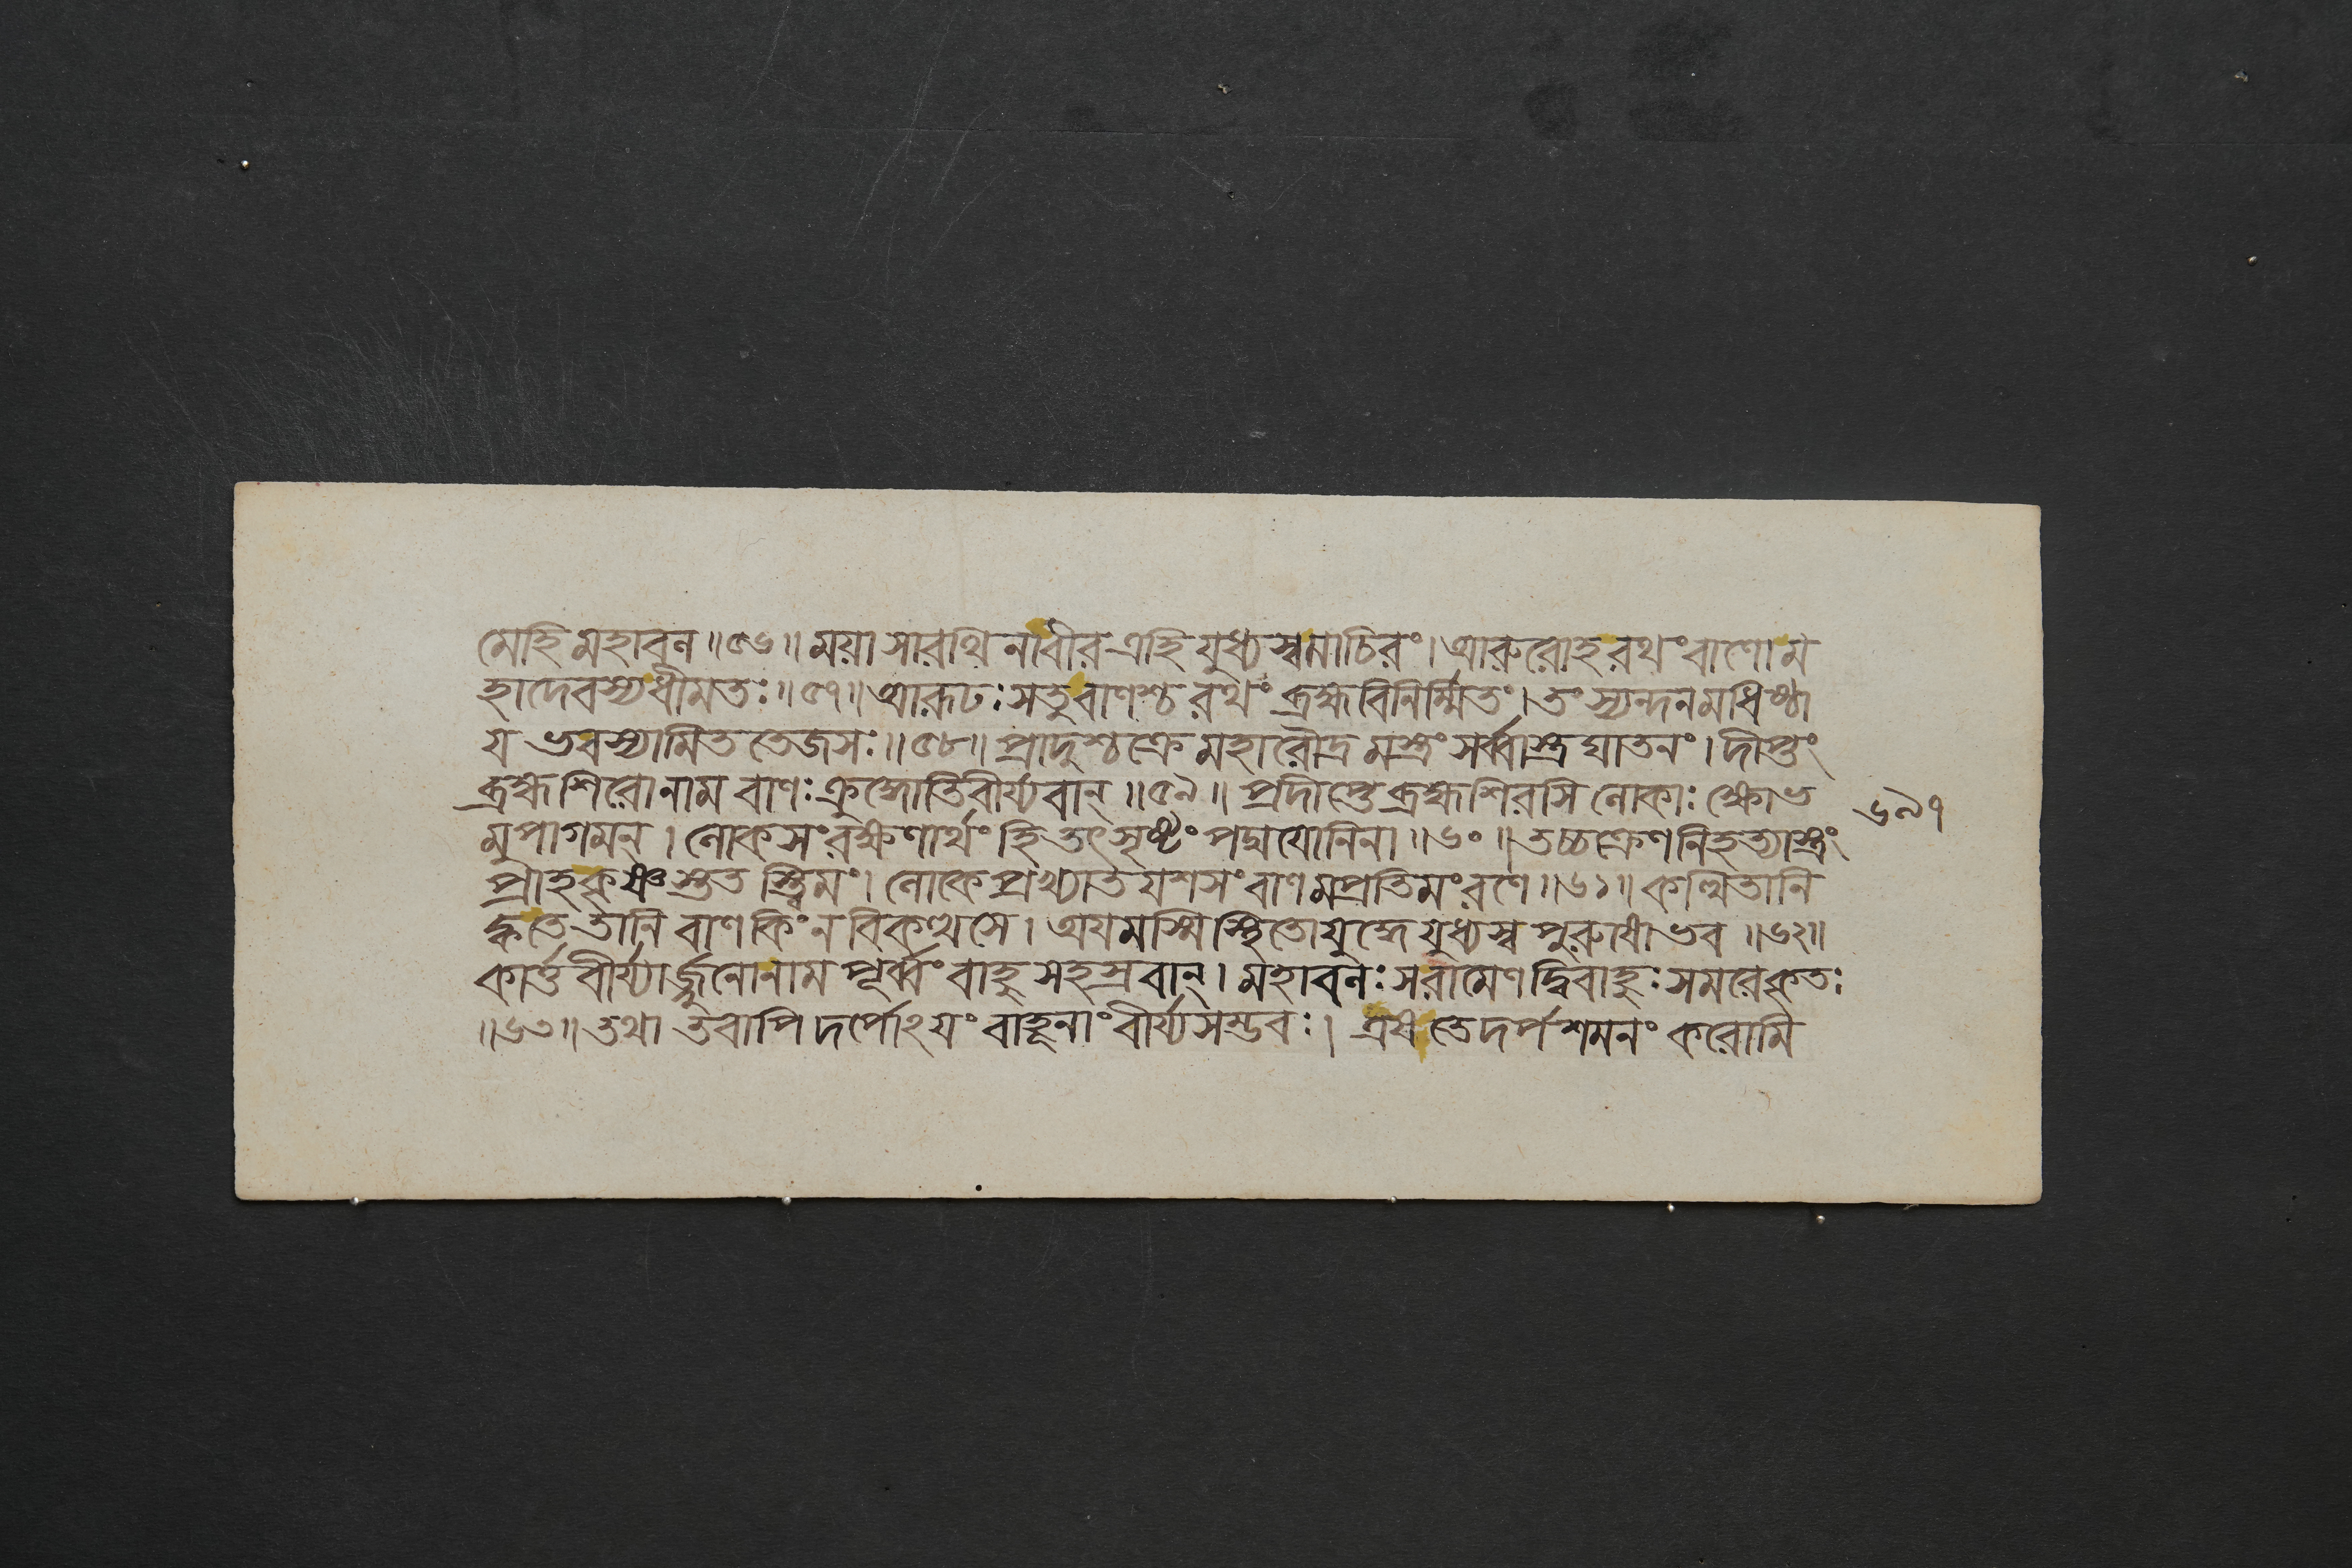 মেহি মহাবল ॥৫৬॥ ময়া সারথিনাবীর এহি যুধ্যস্বমাচিরং। আরুরোহ রথং বাণো ম
হাদেবস্যধীমতঃ ॥৫৭॥ আরূঢঃ সতু বাণশ্চ রথং ব্রহ্মবিনির্ম্মিতং। তং স্যন্দনমধিষ্ঠা
য ভবস্যামিত তেজসঃ ॥৫৮॥ প্রাদুশ্চক্রে মহারৌদ্র মস্ত্রং সর্ব্বাস্ত্র ঘাতনং। দীপ্তং
ব্রহ্মশিরোনাম বাণঃ ক্রুদ্ধোতিবীর্য্যবান্ ॥৫৯॥ প্রদীপ্তে ব্রহ্মশিরসি লোকাঃ ক্ষোভ
মুপাগমন্। লোকসংরক্ষণার্থং হি তৎসৃষ্টং পদ্মযোনিনা ॥৬০॥ তচ্চক্রেণনিহত্যাস্ত্রং
প্রাহকৃষ্ণস্তরস্বিনং। লোকে প্রখ্যাত যশসং বাণমপ্রতিমং রণে ॥৬১॥ কত্থিতানি
ক্বতে তানি বাণ কিং ন বিকত্থসে। অযমস্মি স্থিতো যুদ্ধে যুধ্যস্ব পুরুষোভব ॥৬২॥
কার্ত্তবীর্য্যার্জ্জুনোনাম পূর্ব্বং বাহু সহস্রবান্। মহাবলঃ সরামেণ দ্বিবাহুঃ সমরেকৃতঃ
॥৬৩॥ তথা তবাপি দর্পোঽযং বাহূনাং বীর্য্যসম্ভবঃ। এষ তে দর্পশমনং করোমি
৬৯৭